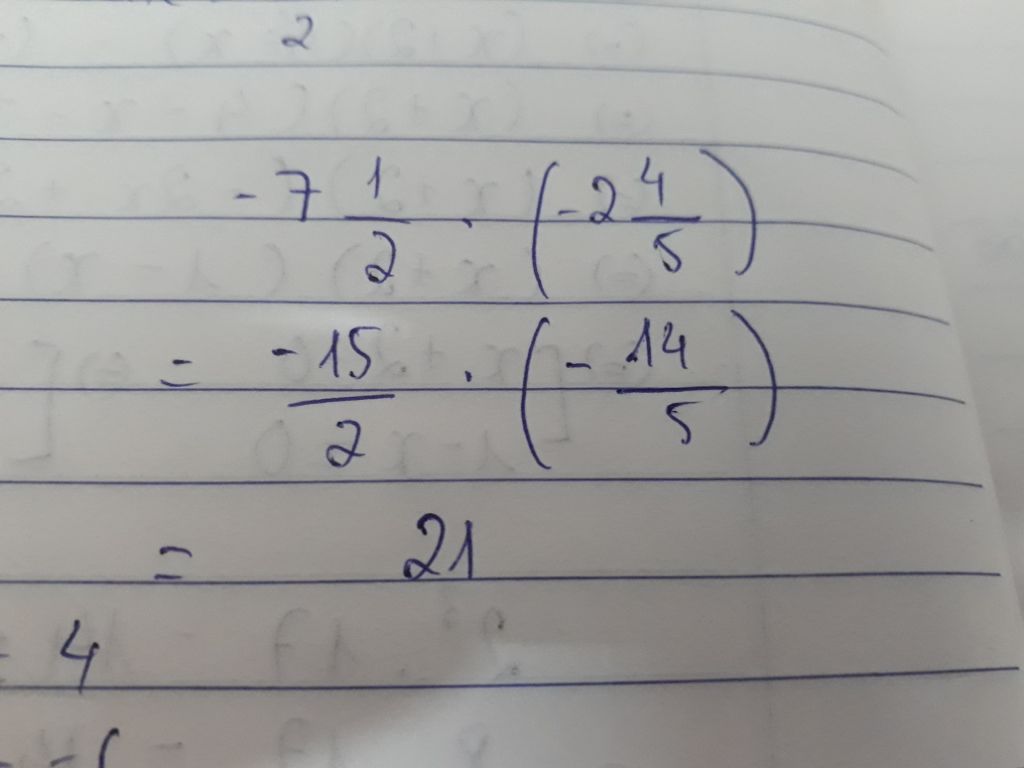 2
-7 1/2 . (-2 4/5)
= -15/2 . (-14/5)
= 21
4